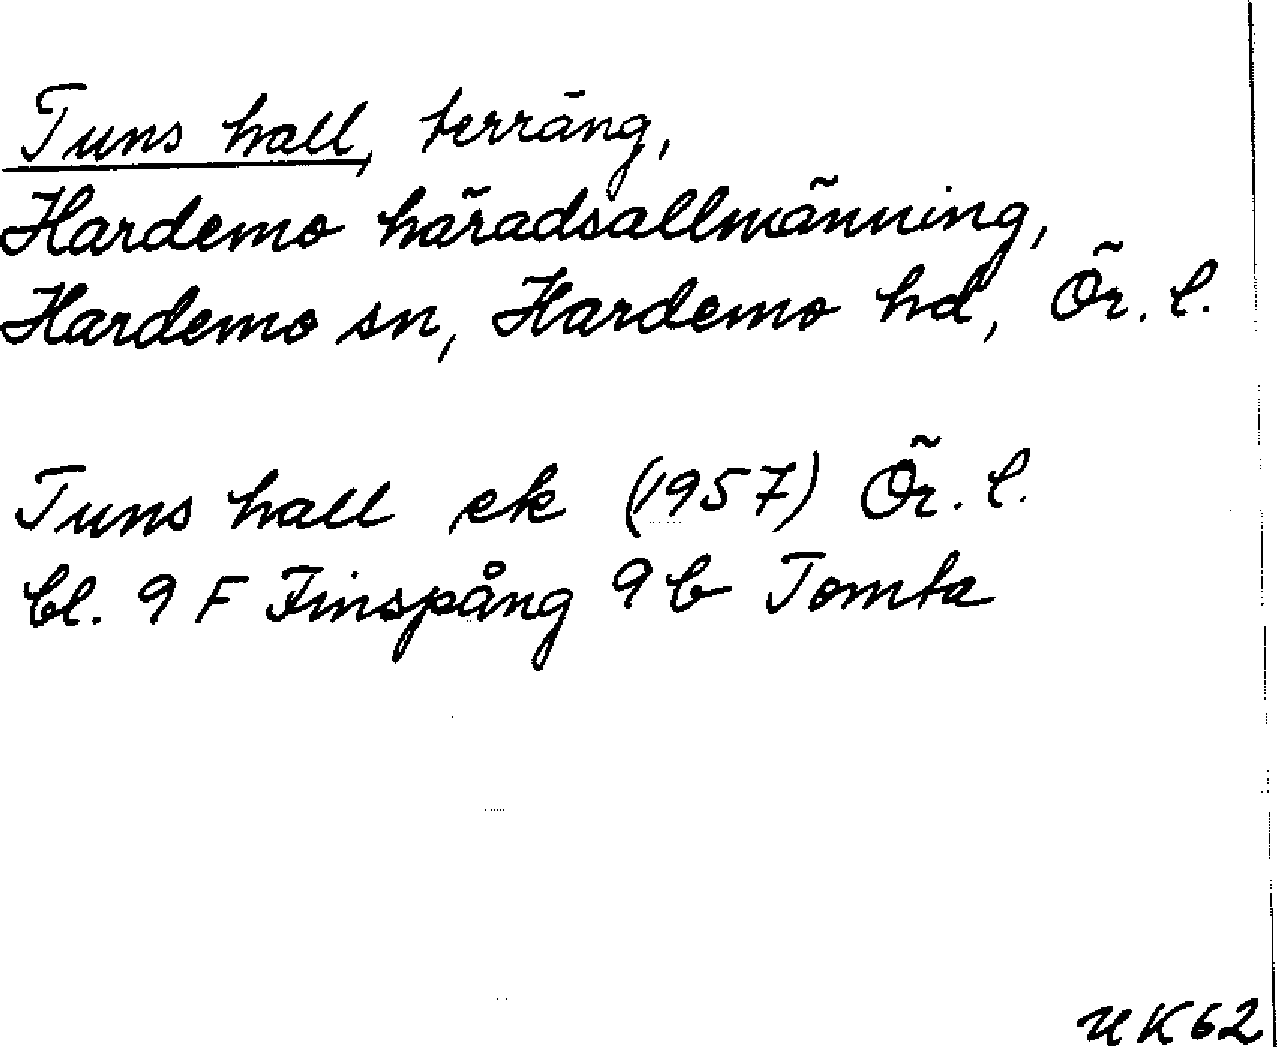 Tuns hall, terräng,
Hardemo häradsallmänning,
Hardemo sn, Hardemo hd, Ör. l.
Tuns hall ek (1957) Ör. l.
bl. 9 F Finspång 9 b Tomta
UK62